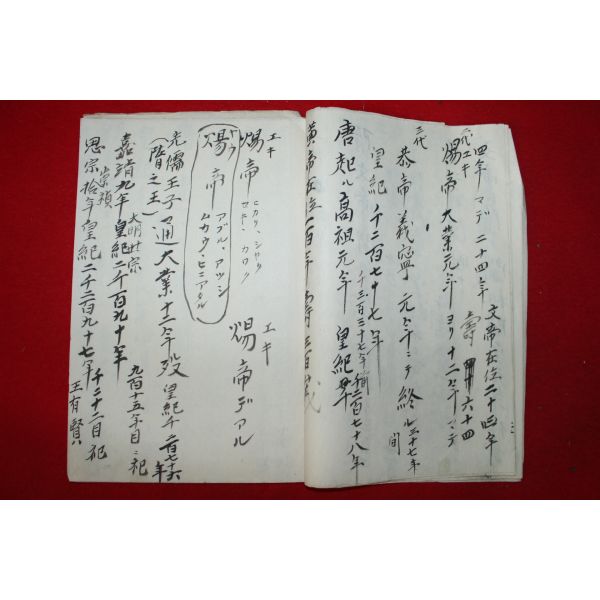 四年マデ 二十四年
文帝在位二十四年
壽 六十四
二代 エキ
煬帝 大業元年ヨリ十二年マデ
三代
恭帝義寧元年ニテ終ル三十七年間
皇紀千二百七十七年
千三百三十七年
唐起ル高祖元年 皇紀 千二百七十八年
黄帝在位百年 壽三百歳
エキ
煬帝 ヒカリ、シャク
エキ
煬帝デアル
トウ
煬帝 アブル、アツシ
ムカウ、ヒニアタル
先儒王子通大業十二年歿 皇紀千二百七十六年
(隋之王)
嘉靖九年 皇紀二千百九十年
大明世宗
九百十五年目ニ祀
崇禎
思宗拾年皇紀二千二百九十七年
千二十二目祀
王有賢